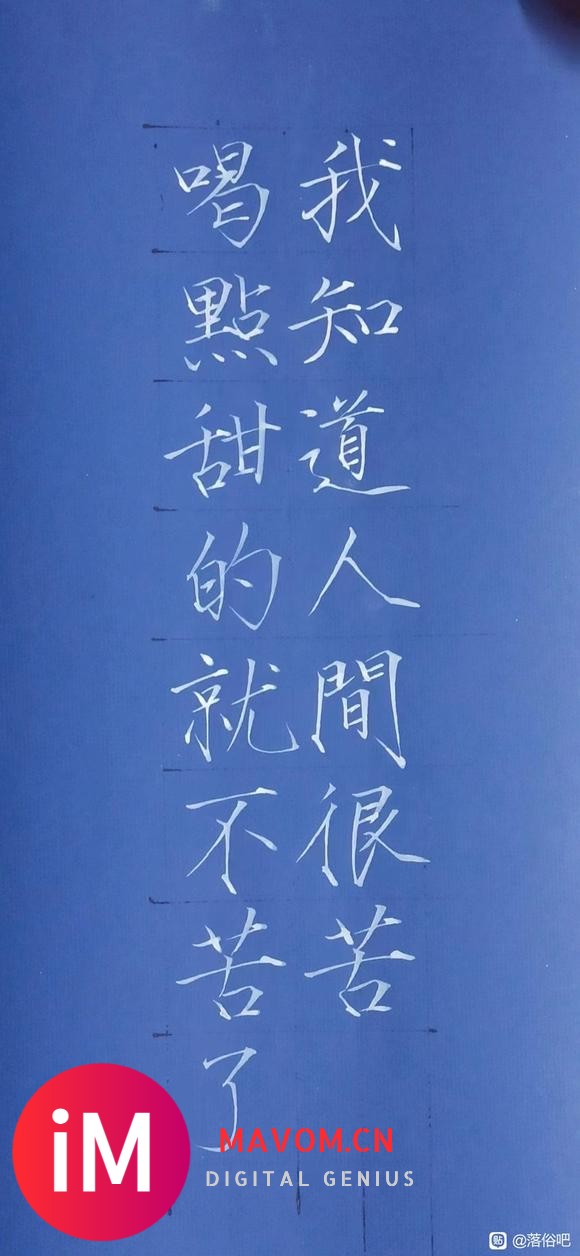 我知道人間很苦
喝點甜的就不苦了
iM
MAVOM.CN
DIGITAL GENIUS
贴 @落俗吧